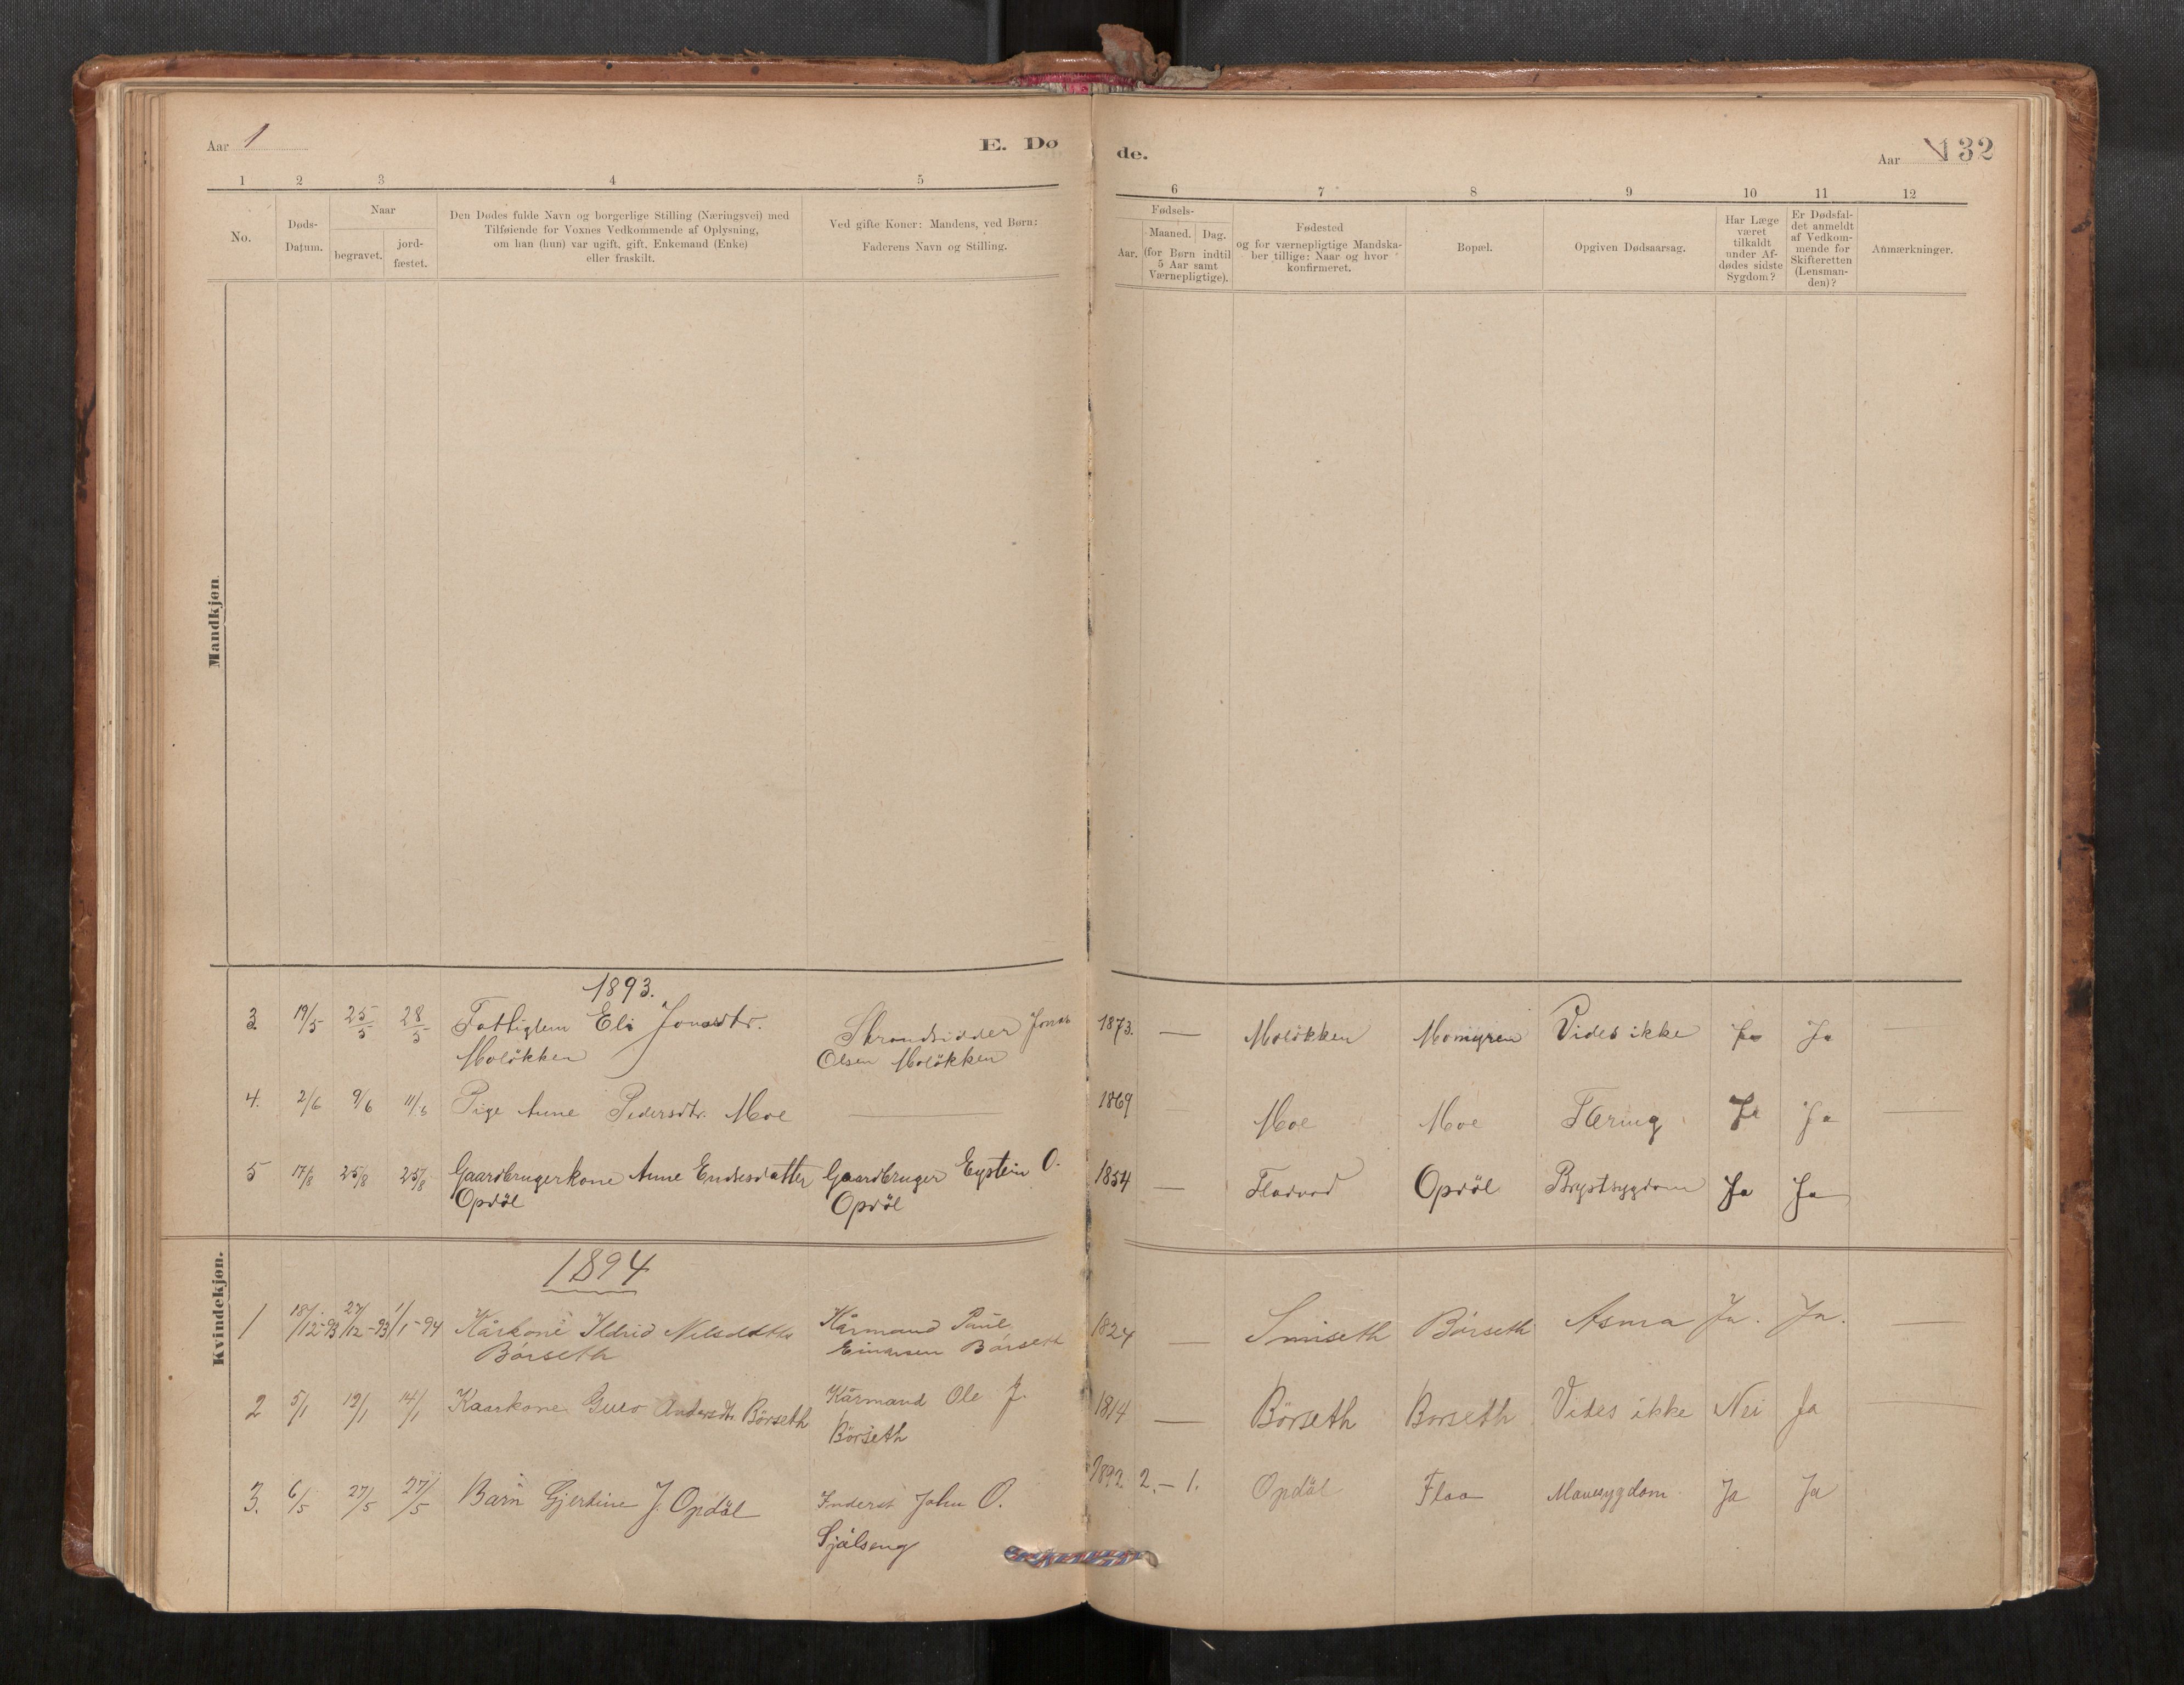 Aar 1
E. Dø
de.
Aar
132
1 2 3 4 5
6 7 8 9 10 11 12
No.
Døds-
Datum.
Naar
begravet.
jord-
fæstet.
Den Dødes fulde Navn og borgerlige Stilling (Næringsvei) med
Tilføiende for Voxnes Vedkommende af Oplysning,
om han (hun) var ugift, gift, Enkemand (Enke)
eller fraskilt.
Ved gifte Koner: Mandens, ved Børn:
Faderens Navn og Stilling.
Fødsels-
Aar.
Maaned. Dag.
(for Børn indtil
5 Aar samt
Værnepligtige).
Fødested
og for værnepligtige Mandska-
ber tillige: Naar og hvor
konfirmeret.
Bopæl.
Opgiven Dødsaarsag.
Har Læge
været
tilkaldt
under Af-
dødes sidste
Sygdom?
Er Dødsfal-
det anmeldt
af Vedkom-
mende for
Skifteretten
(Lensman-
den)?
Anmærkninger.
Mandkjøn.
Kvindekjøn.
1893.
3. 19/5 25/5 28/5 Fattiglem Eli Jonasdtr. Strandsidder Jonas 1873. — Moløkken Momyren Vides ikke Ja Ja
Moløkken Olsen Moløkken
4. 2/6 9/6 11/6 Pige Anne Pedersdtr. Moe — 1869 Moe Moe Tæring Ja Ja —
5 17/8 25/8 25/8 Gaardbrugerkone Anne Endresdatter Gaardbruger Eystein O. 1854 — Fladvad Opdøl Brystsygdom Ja Ja
Opdøl Opdøl
1894
1 18/12-93 27/12-93 1/1-94 Kårkone Ildrid Nilsdtr Kårmand Paul 1824 — Smiseth Børseth Asma Ja. Ja. —
Børseth Einarsen Børseth
2 5/1 12/1 14/1 Kaarkone Guro Andersdtr Børseth Kårmand Ole J. 1814 — Børseth Børseth Vides ikke Nei Ja —
Børseth
3. 6/5 27/5 27/5 Barn Gjertine J. Opdøl Inderst John O. 1892. 2. — 1. Opdøl Flaa Mavesygdom Ja Ja
Sjølseng